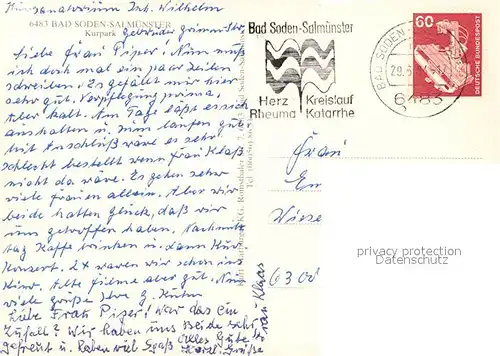 Kursanatorium Joh. Wilhelm
6483 BAD SODEN-SALMÜNSTER
Kurpark
Gebrüder Grimmstr.
Liebe Frau Piper! Nun muß
ich doch mal ein paar Zeilen
schreiben. Es gefällt mir hier
sehr gut. Verpflegung prima.
Aber kalt. Am Tage läßt es sich
aushalten u. zum laufen gut.
Mit Anschluß wäre es sehr
schlecht bestellt wenn Frau Klaß
nicht da wäre. Es gehen sehr
viele Frauen allein. Aber wir
beide hatten Glück, daß wir
uns getroffen haben. Nachmit-
tag Kaffe trinken u. dann Kur
Konzert. 2x waren wir schon im
Kino. Alte Filme aber gut. Nun
viele Grüße Ihre G. Kuhn
Liebe Frau Piper! War das ein
Zufall? Wir haben uns beide sehr
gefreut u. haben viel Spaß. Alles Gute u.
Herzl. Grüße
Frau Klaas
Bad Soden-Salmünster
Herz Kreislauf
Rheuma Katarrhe
BAD SODEN
6483
60
DEUTSCHE BUNDESPOST
Frau
Wiese
6300
privacy protection
Datenschutz